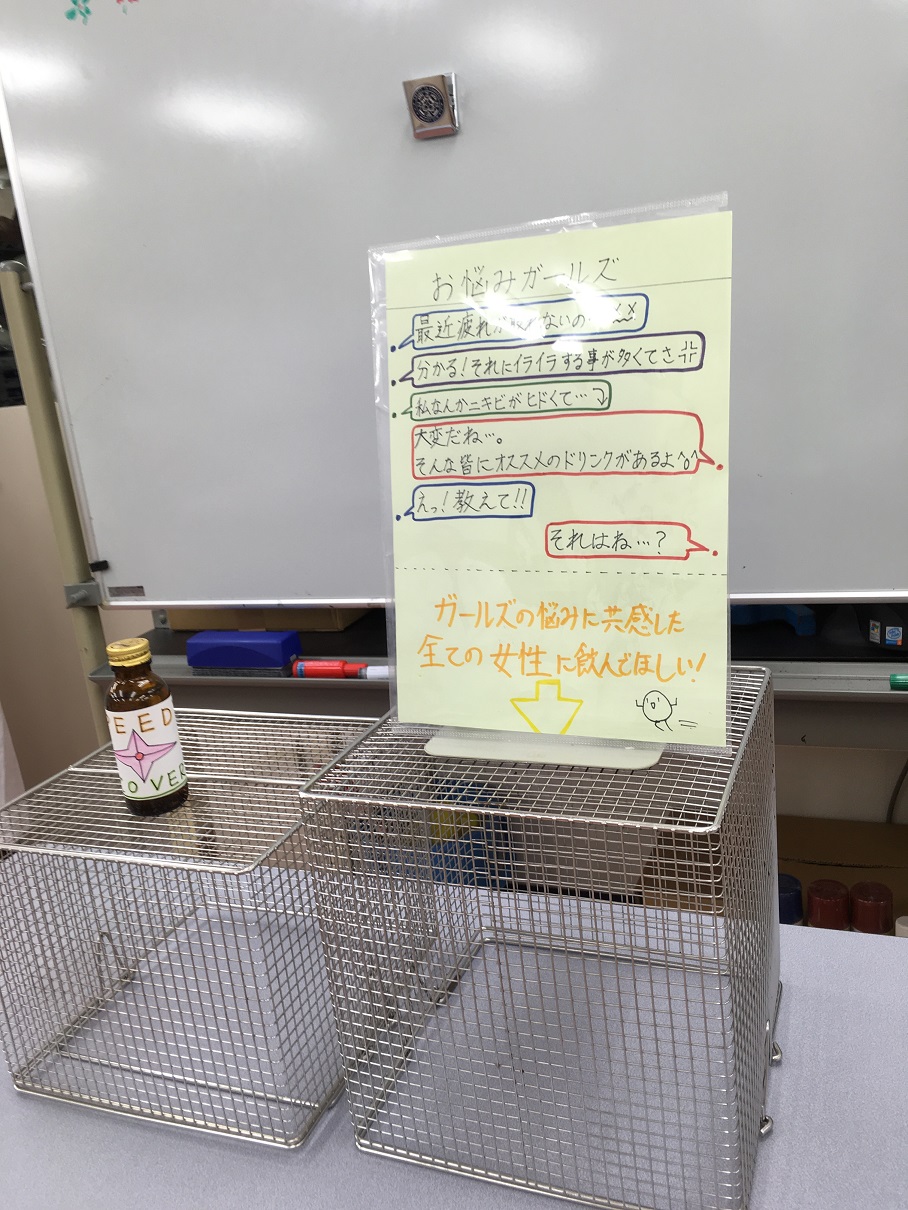 お悩みガールズ
最近疲れが取れないの…
分かる！それにイライラする事が多くてさ
私なんかニキビがヒドくて…
大変だね…。
そんな皆にオススメのドリンクがあるよ^o^
えっ！教えて!!
それはね…？
ガールズの悩みに共感した
全ての女性に飲んでほしい！
EED
OVER